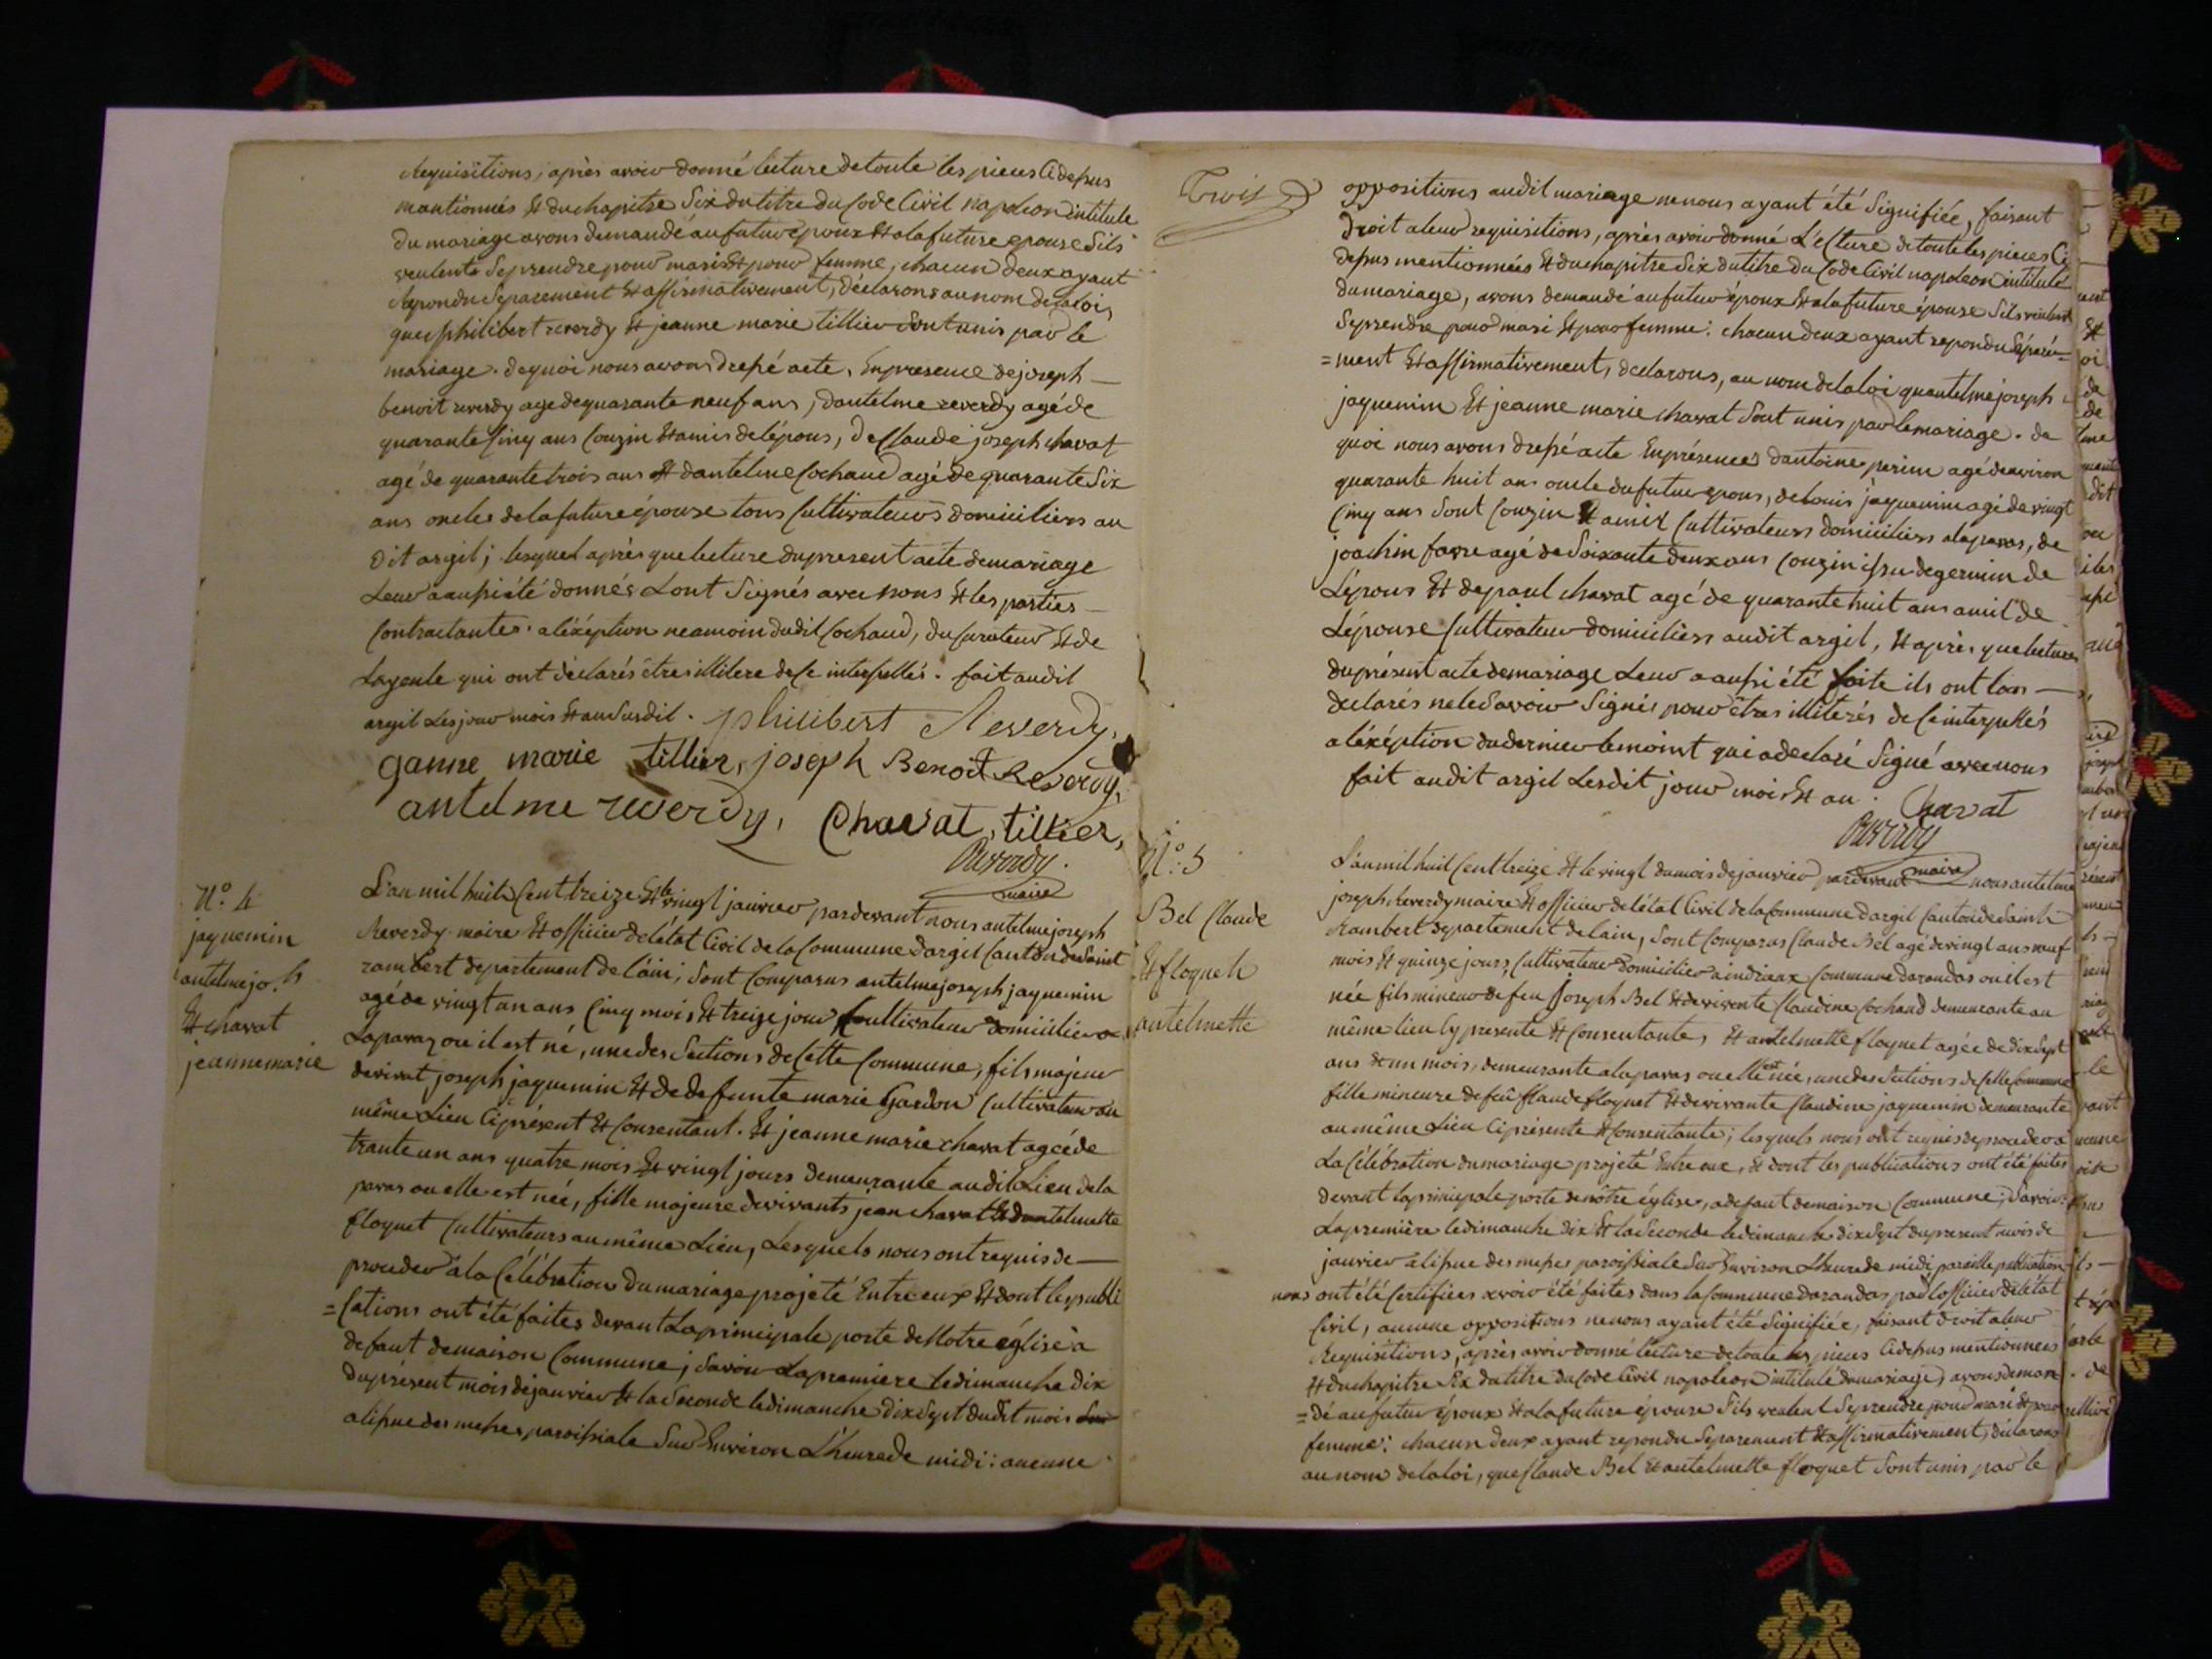 Requisitions, après avoir donné lecture de toute les pieces Ci dessus
mantionnés Et du chapitre Six du titre du Code Civil napoleon intitule
du mariage avons demandé au futur époux Et a la future epouse Sils
veulents Se prendre pour maris Et pour femme, chacun deux ayant
Repondu Separement Et affirmativement, déclarons au nom de la loi,
que philibert reverdy Et jeanne marie tillier Sont unis par le
mariage. de quoi nous avons dressé acte, En presence de joseph —
benoit reverdy age de quarante neuf ans, dantelme reverdy agé de
quarante Cinq ans Couzin Et amis de lépous, de Claude joseph chavat
agé de quarante trois ans Et dantelme Cochaud agé de quarante Six
ans oncles de la future épouse tous Cultivateurs domiciliers au
dit argil; lesquel après que lecture du present acte de mariage
Leur a aussi été donnés Lont Signés avec nous Et les parties —
Contractantes. a léxéption neamoin dudit Cochaud, du Curateur Et de
Layeule qui ont déclarés êtres illitere de Ce interpellés. fait audit
argil Les jour mois Et an Susdit. philibert Reverdy,
ganne marie tillier, joseph Benoit Reverdy,
antelme reverdy, Chavat, tillier,
Reverdy.
maire
N.° 4
jaquemin
antelme jo.h
Et chavat
jeanne marie
L'an mil huit Cent treize Et le vingt janvier pardevant nous antelme joseph
Reverdy maire Et officier de létat Civil de la Commune dargil Canton de Saint
rambert departement de l'ain; Sont Comparus antelme joseph jaquemin
agé de vingt un ans Cinq mois Et treize jour, Cultivateur domicilier a
Laparaz ou il est né, une des Sections de Cette Commune, fils majeur
de vivat joseph jaquemin Et de defunte marie Gardon Cultivateur au
même Lieu Ci présent Et Consentant. Et jeanne marie chavat agée de
trante un ans quatre mois Et vingt jours demeurante audit Lieu de la
paras ou elle est née, fille majeure de vivants jean chavat Et dantelmette
floquet Cultivateurs au même Lieu, Lesquels nous ont requis de —
proceder à la Célébration du mariage projeté Entre eux Et dont les publi
= Cations ont été faites devant La principale porte de Notre église à
defaut de maison Commune; Savoir La premiere le dimanche dix
du présent mois de janvier Et la Seconde le dimanche dix Sept dudit mois
a lissue des messes paroissiale Sur Environ L'heure de midi: aucune
Trois
oppositions audit mariage ne nous ayant été Signifiée, faisant
droit a leur requisitions, après avoir donné L'ecture de toute les pieces Ci
dessus mentionnées Et du chapitre Six du titre du Code Civil napoleon intitulé
du mariage, avons demandé au futur époux Et a la future épouse Sils veulent
Se prendre pour mari Et pour femme: chacun deux ayant repondu Séparé=
= ment Et affirmativement, declarons, au nom de la loi quantelme joseph
jaquemin Et jeanne marie chavat Sont unis par le mariage. de
quoi nous avons dressé acte En présences dantoine perim agé denviron
quarante huit ans oncle du futur epous, de louis jaquemin agé de vingt
Cinq ans Sont Couzin Et amis Cultivateurs domiciliers alaparas, de
joachin favre agé de Soixante deux ans Couzin issu de germin de
L'épous Et de paul chavat agé de quarante huit ans amit de
L'épouse Cultivateur domiciliers audit argil, Et après que lecture
du présent acte de mariage Leur a aussi été faite ils ont tous —
declarés ne le Savoir Signés pour êtres illiterés de Ce interpellés
a léxéption du dernier temoint qui a declaré Signé avec nous
fait audit argil Lesdit jour mois Et an. Chavat
Reverdy
maire
N.° 5
Bel Claude
Et floquet
antelmette
L'an mil huit Cent treize Et le vingt du mois de janvier pardevant nous antelme
joseph Reverdy maire Et officier de létat Civil de la Commune dargil Canton de Saint
Rambert departement de lain, Sont Comparus Claude Bel agé de vingt ans neuf
mois Et quinze jours, Cultivateur domicilier a indrieux Commune darandas ou il est
née fils mineur de feu Joseph Bel Et de vivente Claudine Cochaud demeurante au
même lieu Cy presente Et Consentante, Et antelmette floquet agée de dix Sept
ans et un mois, demeurante a laparas ou elle est née, une des Sections de Cette Commune
fille mineure de feû Claude floquet Et de vivante Claudine jaquemin demeurante
au même Lieu Ci présente Et Consentante; lesquels nous ont requis de proceder a
La Célébration du mariage projeté Entre eux, Et dont les publications ont été faites
devant la principale porte de nôtre église, a defaut de maison Commune; Savoir:
La première le dimanche dix Et la Seconde le dimanche dix Sept du present mois de
janvier a lissue des messes paroissiale Sur Environ L'heure de midi, pareille publication
nous ont été Certifiées avoir été faites dans la Commune darandas par lofficier de létat
Civil, aucune oppositions ne nous ayant été Signifiée, faisant droit a leur
Requisitions, après avoir donné lecture de toute les pieces Ci dessus mentionnées
Et du chapitre Six du titre du Code Civil napoleon intitulé du mariage, avons deman
= dé au futur époux Et a la future épouse Sils veulent Se prendre pour mari Et pour
femme: chacun deux ayant repondu Separement Et affirmativement, déclarons
au nom de la loi, que Claude Bel Et antelmette floquet Sont unis par le